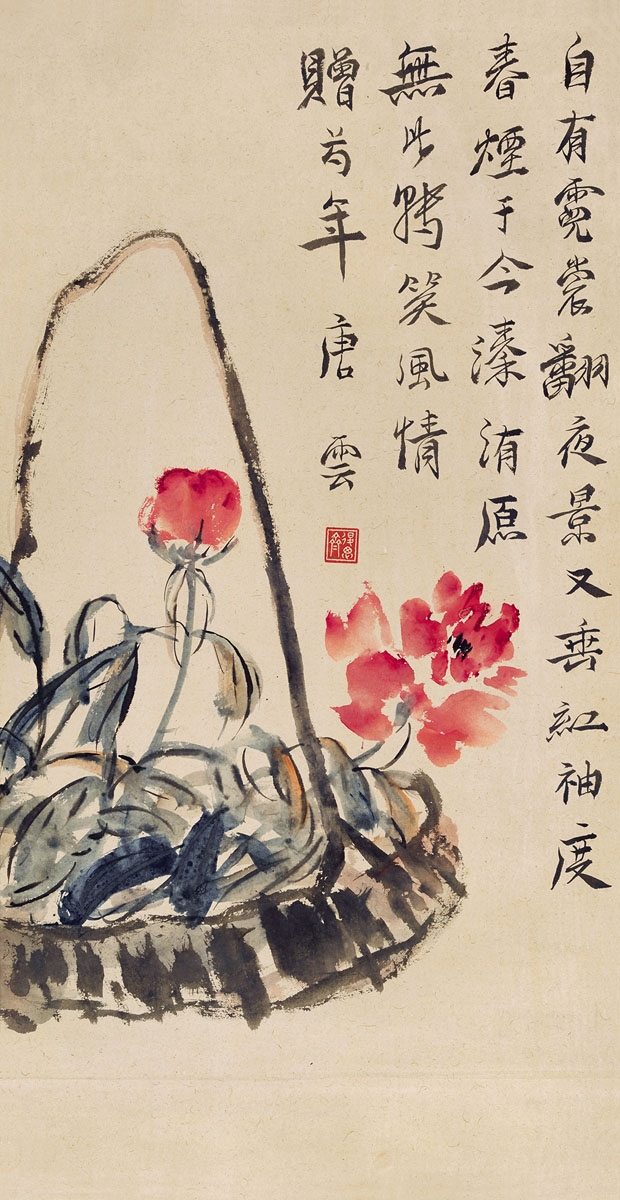 自有霓裳翻夜景又垂紅袖度
春煙于今溱洧原
無此笑風情
贈芍年 唐雲